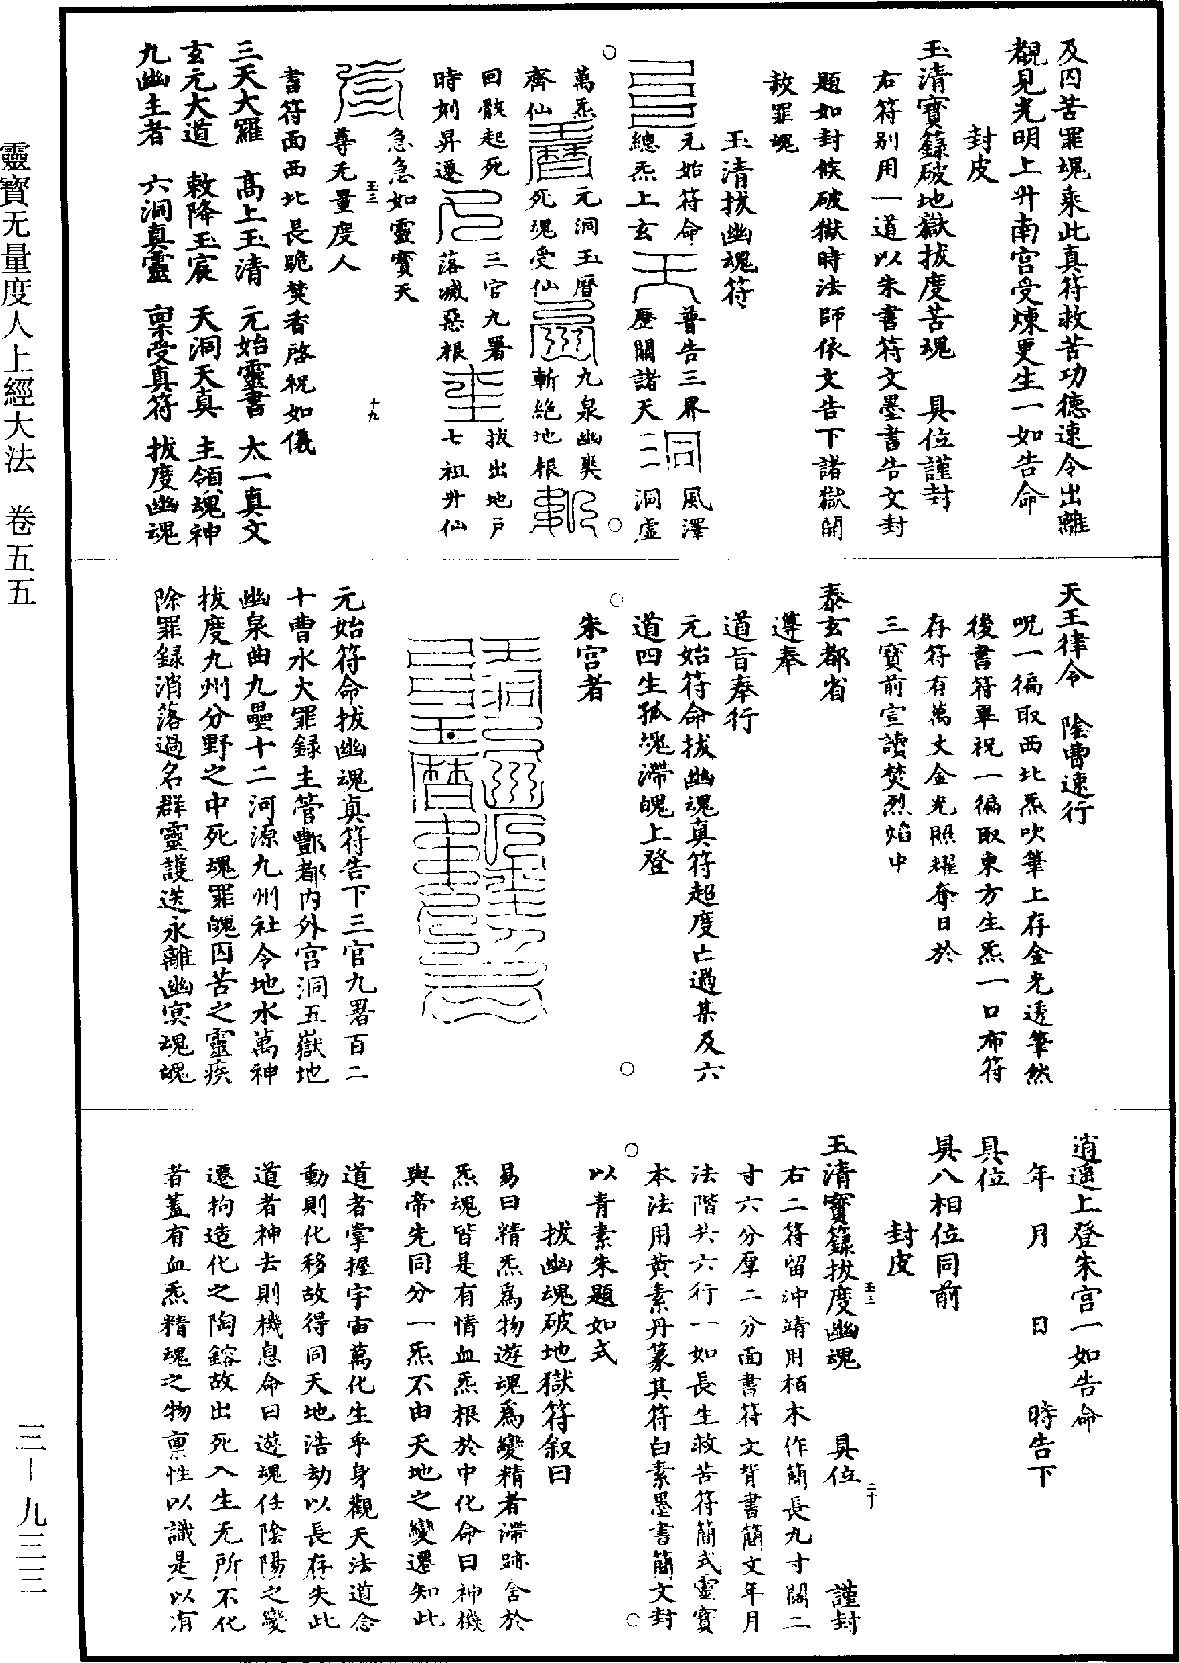 及囚苦罪魂乘此真符救苦功德速令出離
覩見光明上升南宮受煉更生一如告命
封皮
玉清寶籙破地獄拔度苦魂　具位謹封
右符别用一道以朱書符文墨書告文封
題如封候破獄時法師依文告下諸獄開
赦罪魂
玉清拔幽魂符
元始符命　普告三界　風澤
總炁上玄　歷關諸天　洞虛
萬炁　元洞玉曆　九泉幽爽
齊仙　死魂受仙　斬絶地根
回骸起死　三官九署　拔出地户
時刻昇遷　落滅惡根　七祖升仙
急急如靈寳天
尊无量度人
書符面西北長跪焚香啓祝如儀
三天大羅　高上玉清　元始靈書　太一真文
玄元大道　敕降玉宸　天洞天真　主領魂神
九幽主者　六洞真靈　禀受真符　拔度幽魂
天王律令　陰曹速行
呪一徧取西北炁吹筆上存金光透筆然
後書符畢祝一徧取東方生炁一口布符
存符有萬丈金光照耀奪日於
三寶前宣讀焚烈焰中
泰玄都省
遵奉
道旨奉行
元始符命拔幽魂真符超度亡過某及六
道四生孤魂滯魄上登
朱宮者
元始符命拔幽魂真符告下三官九署百二
十曹水火罪録主管酆都内外宫洞五嶽地
幽泉曲九壘十二河源九州社令地水萬神
拔度九州分野之中死魂罪魄囚苦之靈疾
除罪録消落過名群靈護送永離幽冥魂魄
逍遥上登朱宮一如告命
年　月　日　時告下
具位
具八相位同前
封皮
玉清寶籙拔度幽魂　具位　謹封
右二符留沖靖用栢木作簡長九寸闊二
寸六分厚二分面書符文背書簡文年月
法階共六行一如長生救苦符簡式靈寳
本法用黄素丹篆其符白素墨書簡文封
以青素朱題如式
拔幽魂破地獄符叙曰
易曰精炁爲物遊魂爲變精者滞跡舍於
炁魂皆是有情血炁根於中化命曰神機
與帝先同分一炁不由天地之變遷知此
道者掌握宇宙萬化生乎身觀天法道念
動則化移故得同天地浩劫以長存失此
道者神去則機息命曰遊魂任陰陽之變
遷拘造化之陶鎔故出死入生无所不化
者蓋有血炁精魂之物禀性以識是以有
靈寳无量度人上經大法　卷五五
三—九三三